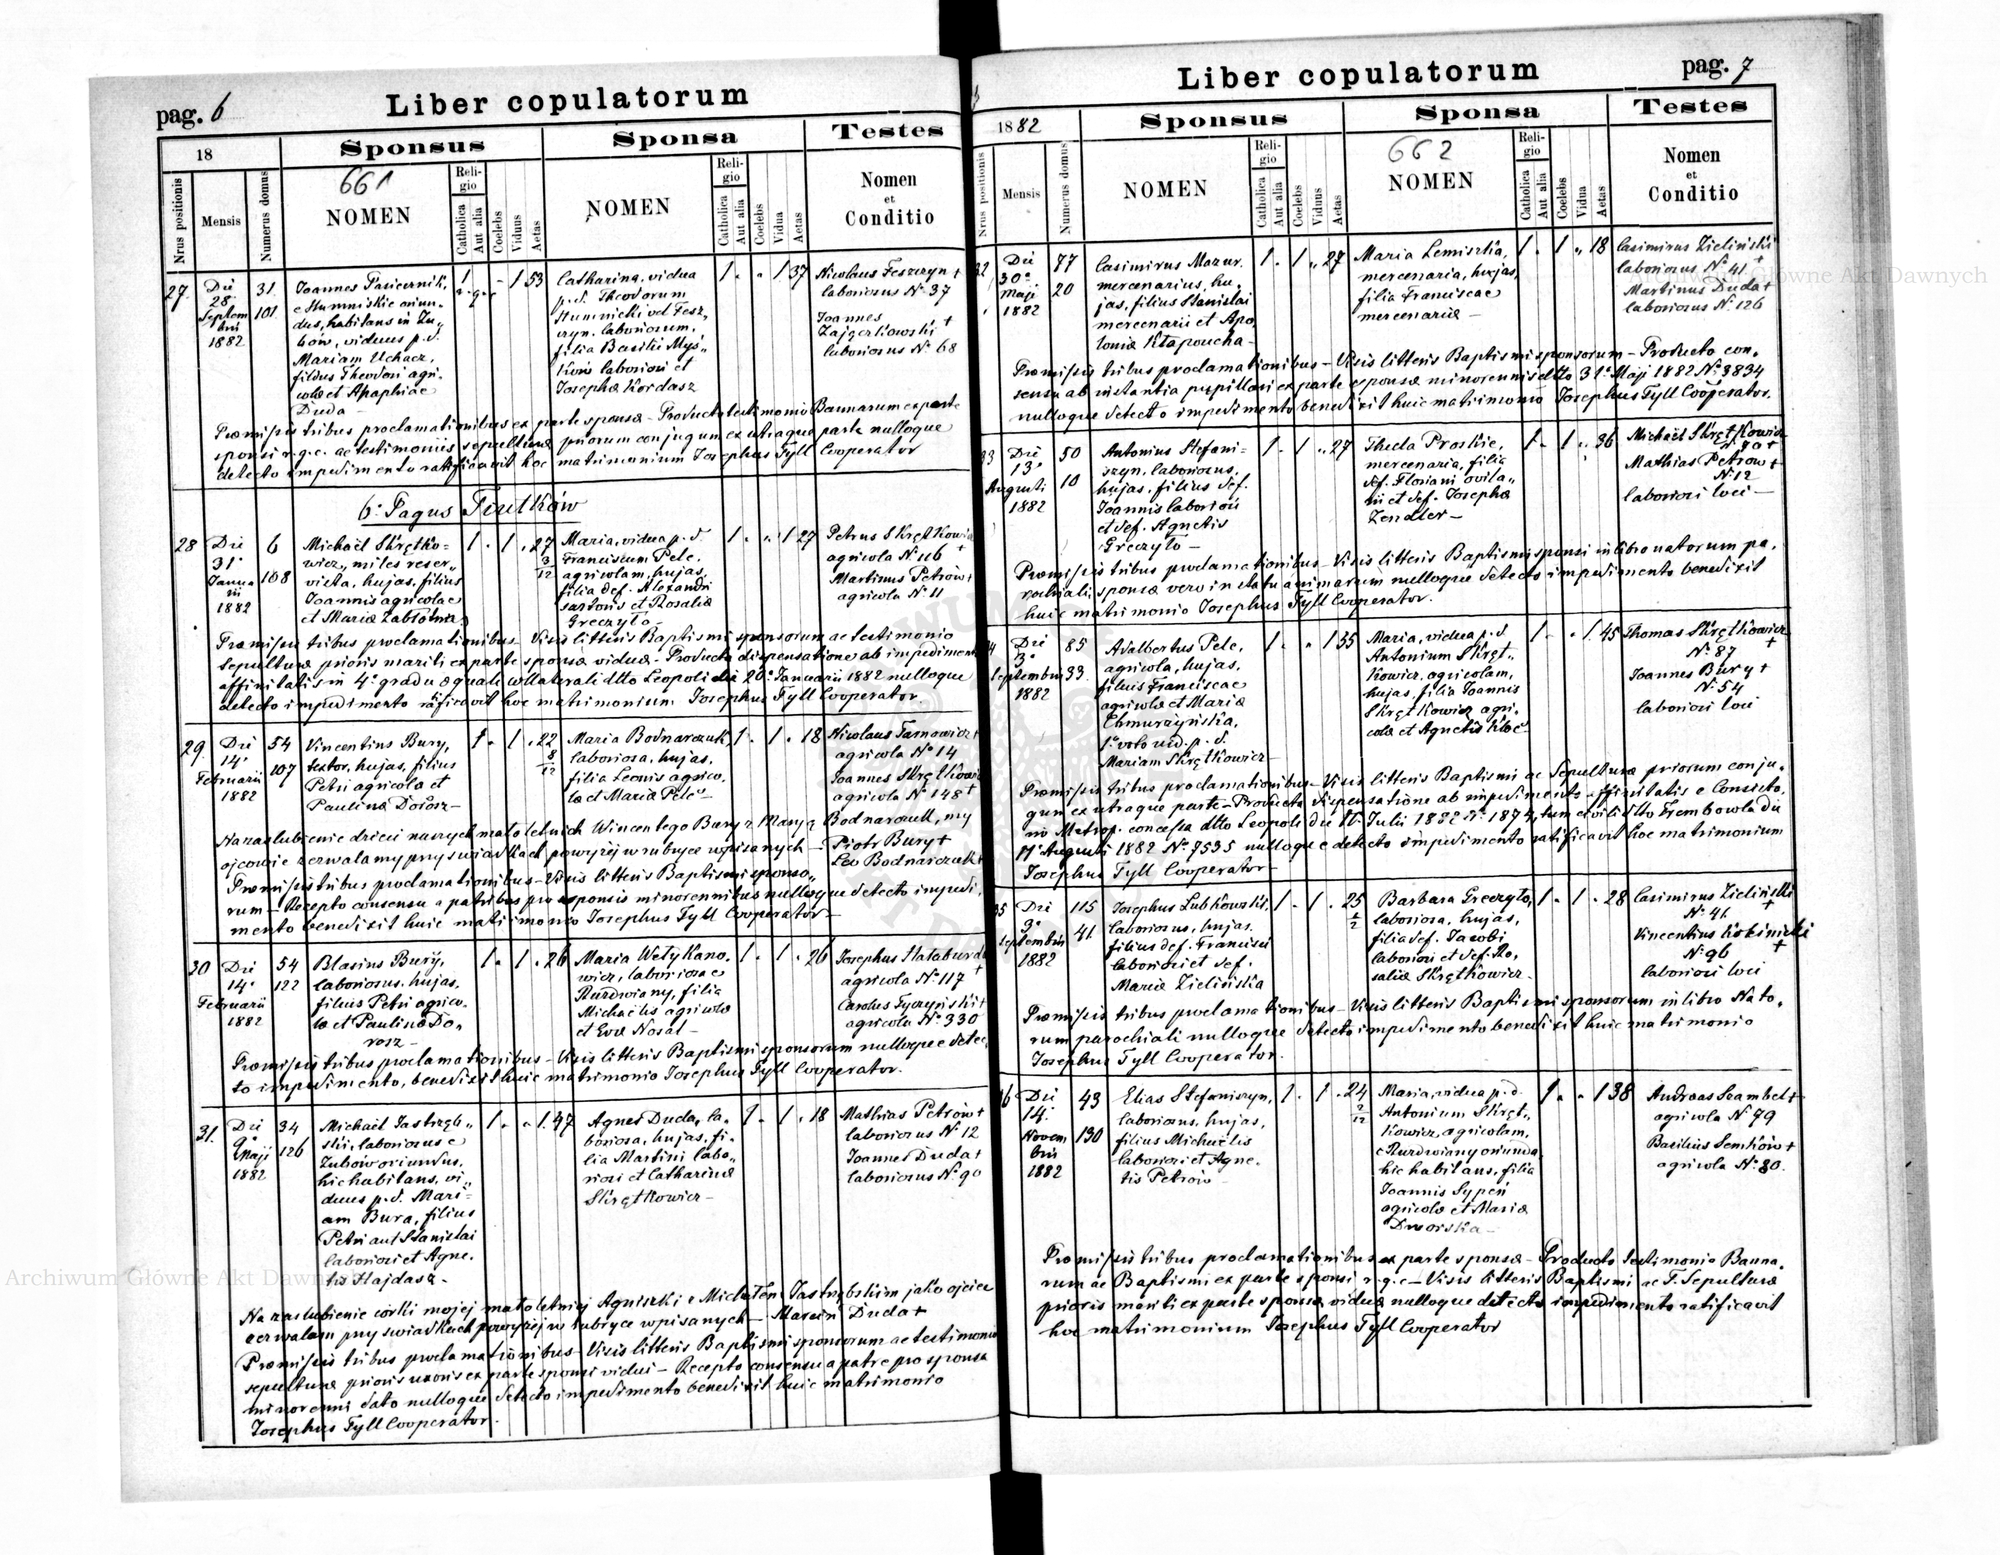 pag. 6
Liber copulatorum
18
Sponsus
Sponsa
Testes
Nrus positionis
Mensis
Numerus domus
661
NOMEN
Religio
Catholica
Aut alia
Coelebs
Viduus
Aetas
NOMEN
Religio
Catholica
Aut alia
Coelebs
Vidua
Aetas
Nomen
et
Conditio
27.
Die
28
Septem
bris
1882
31.
101
Joannes Pasiecznik,
e Humniskie oriun-
dus, habitans in Zu-
bów, viduus p. d.
Mariam Uchacz,
filius Theodori agri-
colæ et Agaphiae
Duda -
1
r. g. c.
- 1 53
Catharina, vidua
p. d. Theodorum
Humnicki vel Fesz-
czyn. laboriosum,
filia Basilii Myś-
ków laboriosi et
Josephæ Kordasz
1 . . 1 37
Nicolaus Feszczyn +
laboriosus Nº 37
Joannes
Zajączkowski +
laboriosus Nº 68
Præmissis tribus proclamationibus ex parte sponsæ - Producto testimonio Bannorum ex parte
sponsi r. g. c. ac testimoniis sepulturæ priorum conjugum ex utraque parte nulloque
detecto impedimento ratificavit hoc matrimonium Josephus Tyll Cooperator
6. Pagus Tiutków
28
Die
31
Janua
rii
1882
6
108
Michaël Skrętko-
wicz, miles reser-
vista, hujas, filius
Joannis agricolae
et Mariæ Zabłotna
1 . 1 . 27
3
12
Maria, vidua p. d.
Franciscum Pelc.
agricolam, hujas,
filia def. Alexandri
sartoris et Rosaliæ
Greczyło -
1 . . 1 27
Petrus Skrętkowicz
agricola Nº 116 +
Martinus Petrów +
agricola Nº 11
Præmissis tribus proclamationibus - Visis litteris Baptismi sponsorum ac testimonio
sepulturæ prioris mariti ex parte sponsæ viduæ - Producta dispensatione ab impedimento
affinitatis in 4º gradu æquali collaterali dtto Leopoli die 20 Januarii 1882 nulloque
detecto impedimento ratificavit hoc matrimonium Josephus Tyll Cooperator.
29.
Die
14
Februarii
1882
54
107
Vincentius Bury,
textor, hujas, filius
Petri agricolæ et
Paulinæ Dorosz -
1 . 1 . 22
8
12
Maria Bodnarczuk,
laboriosa, hujas,
filia Leonis agrico-
læ et Mariæ Pelc -
1 . 1 . 18
Nicolaus Tarnowicz +
agricola Nº 14
Joannes Skrętkowicz
agricola Nº 148 +
Na zaślubienie dzieci naszych małoletnich Wincentego Bury z Maryą Bodnarczuk, my
ojcowie zezwalamy przy świadkach powyżej w rubryce wpisanych - Piotr Bury +
Leo Bodnarczuk +
Præmissis tribus proclamationibus - Visis litteris Baptismi sponso-
rum - Recepto consensu a patribus pro sponsis minorennibus nulloque detecto impedi-
mento benedixit huic matrimonio Josephus Tyll Cooperator -
30
Die
14
Februarii
1882
54
122
Blasius Bury,
laboriosus, hujas,
filius Petri agrico-
læ et Paulinæ Do-
rosz -
1 . 1 . 26
Maria Wetykano-
wicz, laboriosa e
Ruzdwiany, filia
Michaëlis agricolæ
et Evæ Nosal -
1 . 1 . 26
Josephus Hałaburda
agricola Nº 117 +
Carolus Tyczyński +
agricola Nº 330
Præmissis tribus proclamationibus - Visis litteris Baptismi sponsorum nulloque detec-
to impedimento, benedixit huic matrimonio Josephus Tyll Cooperator.
31.
Die
9
Maji
1882
34
126
Michaël Jastrzęb-
ski, laboriosus e
Zubów oriundus,
hic habitans, vi-
duus p. d. Mari-
am Bura, filius
Petri aut Stanislai
laboriosi et Agne-
tis Hajdasz -
1 . . 1. 47
Agnes Duda, la-
boriosa, hujas, fi-
lia Martini labo-
riosi et Catharinæ
Skrętkowicz -
1 . 1 . 18
Mathias Petrów +
laboriosus Nº 12
Joannes Duda +
laboriosus Nº 90
Na zaślubienie córki mojej małoletniej Agniszki z Michałem Jastrzębskim jako ojciec
zezwalam przy świadkach powyżej w rubryce wpisanych - Marcin Duda +
Præmissis tribus proclamationibus - Visis litteris Baptismi sponsorum ac testimonio
sepulturæ prioris uxoris ex parte sponsi vidui - Recepto consensu a patre pro sponsa
minorenni dato nulloque detecto impedimento benedixit huic matrimonio
Josephus Tyll Cooperator.
Liber copulatorum
pag. 7
1882
Sponsus
Sponsa
Testes
Nrus positionis
Mensis
Numerus domus
NOMEN
Religio
Catholica
Aut alia
Coelebs
Viduus
Aetas
662
NOMEN
Religio
Catholica
Aut alia
Coelebs
Vidua
Aetas
Nomen
et
Conditio
32
Die
30
Maji
1882
77
20
Casimirus Mazur.
mercenarius, hu-
jas, filius Stanislai
mercenarii et Apo-
loniæ Kłapoucha -
1 . 1 . 27
Maria Lemiszka,
mercenaria, hujas,
filia Franciscae
mercenariæ -
1 . 1 . 18
Casimirus Zieliński
laboriosus Nº 41 +
Martinus Duda +
laboriosus Nº 126
Præmissis tribus proclamationibus - Visis litteris Baptismi sponsorum - Producto con-
sensu ab instantia pupillari ex parte sponsæ minorennis dtto 31 Maji 1882 Nº 3834
nulloque detecto impedimento benedixit huic matrimonio Josephus Tyll Cooperator.
33
Die
13
Augusti
1882
50
10
Antonius Stefani-
szyn, laboriosus,
hujas, filius def.
Joannis laboriosi
et def. Agnetis
Greczyło -
1 . 1 . 27
Thecla Proskie,
mercenaria, filia
def. Floriani ovila-
rii et def. Josephæ
Zendler -
1 . 1 . 36
Michaël Skrętkowicz
Nº 90 +
Mathias Petrów +
Nº 12
laboriosi loci -
Præmissis tribus proclamationibus - Visis litteris Baptismi sponsi in libro natorum pa-
rochiali, sponsæ vero in statu animarum nulloque detecto impedimento benedixit
huic matrimonio Josephus Tyll Cooperator.
34
Die
3
Septembris
1882
85
33.
Adalbertus Pelc,
agricola, hujas,
filius Franciscae
agricolæ et Mariæ
Chmurzyńska,
1º voto vid. p. d.
Mariam Skrętkowicz -
1 . . 1 35
Maria, vidua p. d.
Antonium Skręt-
kowicz, agricolam,
hujas, filia Joannis
Skrętkowicz agri-
colæ et Agnetis Kłoc
1 . . 1 45
Thomas Skrętkowicz
Nº 87 +
Joannes Bury +
Nº 54
laboriosi loci
Præmissis tribus proclamationibus - Visis litteris Baptismi ac Sepulturæ priorum conju-
gum ex utraque parte - Producta dispensatione ab impedimento affinitatis e Consisto-
rio Metrop. concessa dtto Leopoli die 11 Julii 1882 Nº 1874, tum civili dtto Trembowla die
11 Augusti 1882 Nº 7535 nulloque detecto impedimento ratificavit hoc matrimonium
Josephus Tyll Cooperator -
35
Die
3
Septembris
1882
115
41.
Josephus Lubkowski,
laboriosus, hujas,
filius def. Francisci
laboriosi et def.
Mariæ Zielińska
1 . 1 . 25
Barbara Greczyło,
laboriosa, hujas,
filia def. Jacobi
laboriosi et def. Ro-
saliæ Skrętkowicz -
1 . 1 . 28
Casimirus Zieliński
Nº 41. +
Vincentius
Nº 96 +
laboriosi loci
Præmissis tribus proclamationibus - Visis litteris Baptismi sponsorum in libro Nato-
rum parochiali nulloque detecto impedimento benedixit huic matrimonio
Josephus Tyll Cooperator.
36
Die
14.
Novem
bris
1882
43
130
Elias Stefaniszyn,
laboriosus, hujas,
filius Michaëlis
laboriosi et Agne-
tis Petrów -
1 . 1 . 24
2
12
Maria, vidua p. d.
Antonium Skręt-
kowicz, agricolam,
e Ruzdwiany oriunda,
hic habitans, filia
Joannis Sypeń
agricolæ et Mariæ
Dworska -
1 . . 1 38
Andreas Szambel +
agricola Nº 79
Basilius Semków +
agricola Nº 80.
Præmissis tribus proclamationibus ex parte sponsæ - Producto testimonio Banno-
rum ac Baptismi ex parte sponsi r. g. c. - Visis litteris Baptismi ac T. Sepulturæ
prioris mariti ex parte sponsæ viduæ nulloque detecto impedimento ratificavit
hoc matrimonium Josephus Tyll Cooperator
Archiwum Główne Akt Dawnych
Archiwum Główne Akt Dawnych